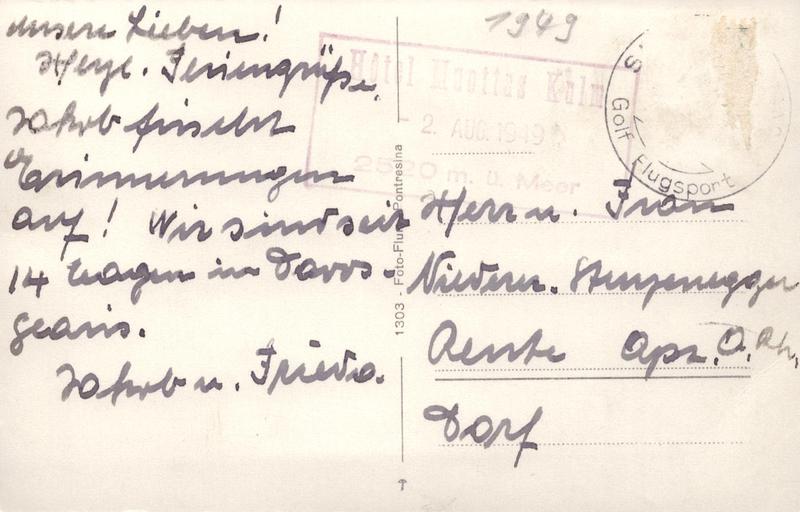 Unsere Lieben!
Herzl. Feriengrüsse,
Jakob frischt
Erinnerungen
auf! Wir sind seit
14 Tagen in Davos-
Jakob u. Frieda.
1303 - Foto-Flury Pontresina
1949
Hôtel Muottas Kulm
- 2. AUG. 1949
2520 m. ü. Meer
S.
Golf Flugsport
Herr u. Frau
Niederer-Sturzenegger
Reute Apz. A. Rh.
Dorf